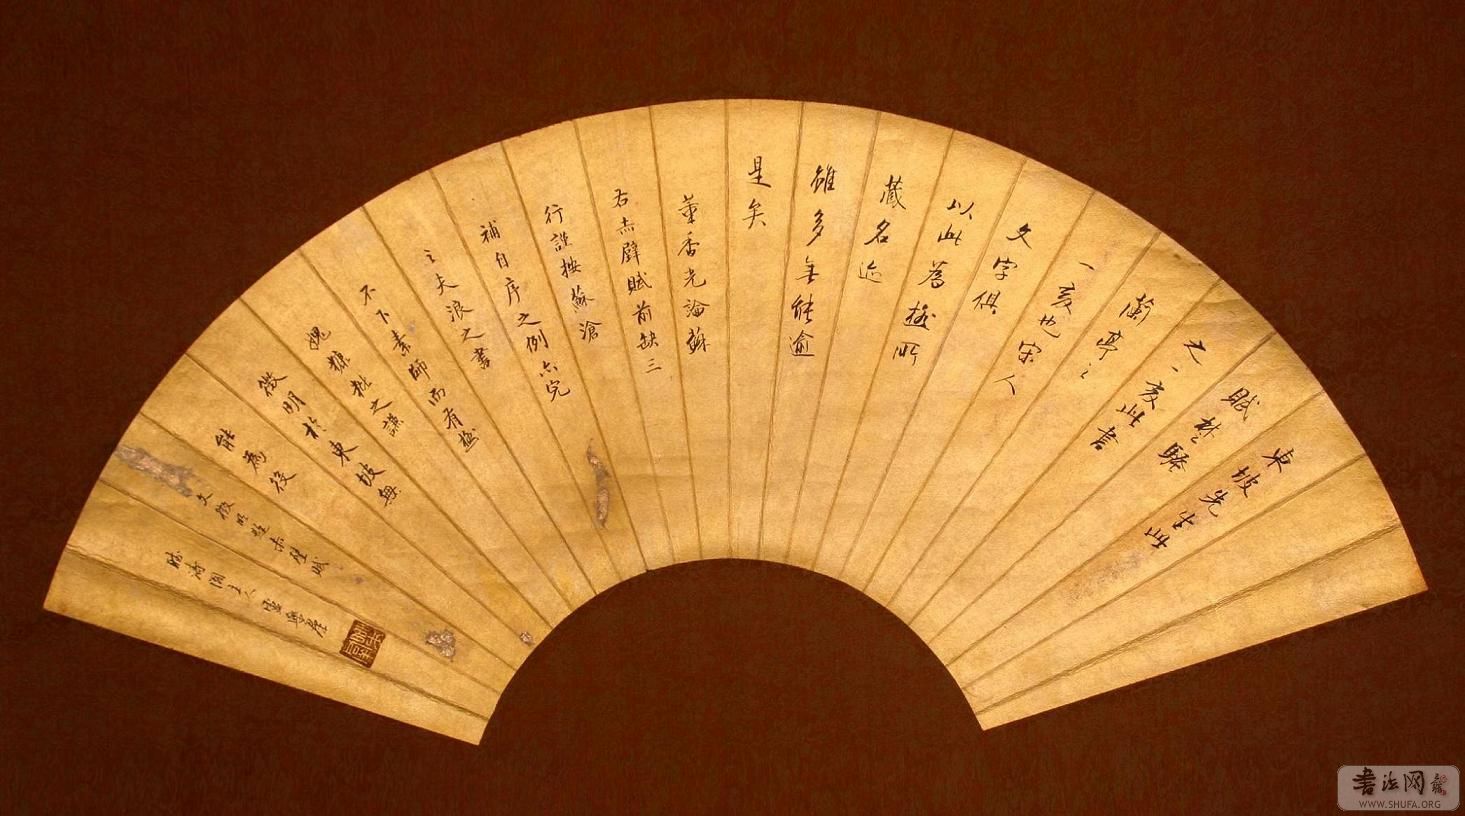 東坡先生此
賦楚騷
之一變此書
蘭亭之
一變也宋人
文字俱
以此為極所
藏名迹
雖多無能逾
是矣
董香光論蘇
右赤壁賦前缺三
行謹按蘇滄
浪補自序之例亦完
之夫浪之書
不下素師而有極
愧糠粃之譏
徵明於東坡無
能為役
文徵明題赤壁賦
書法网
WWW.SHUFA.ORG